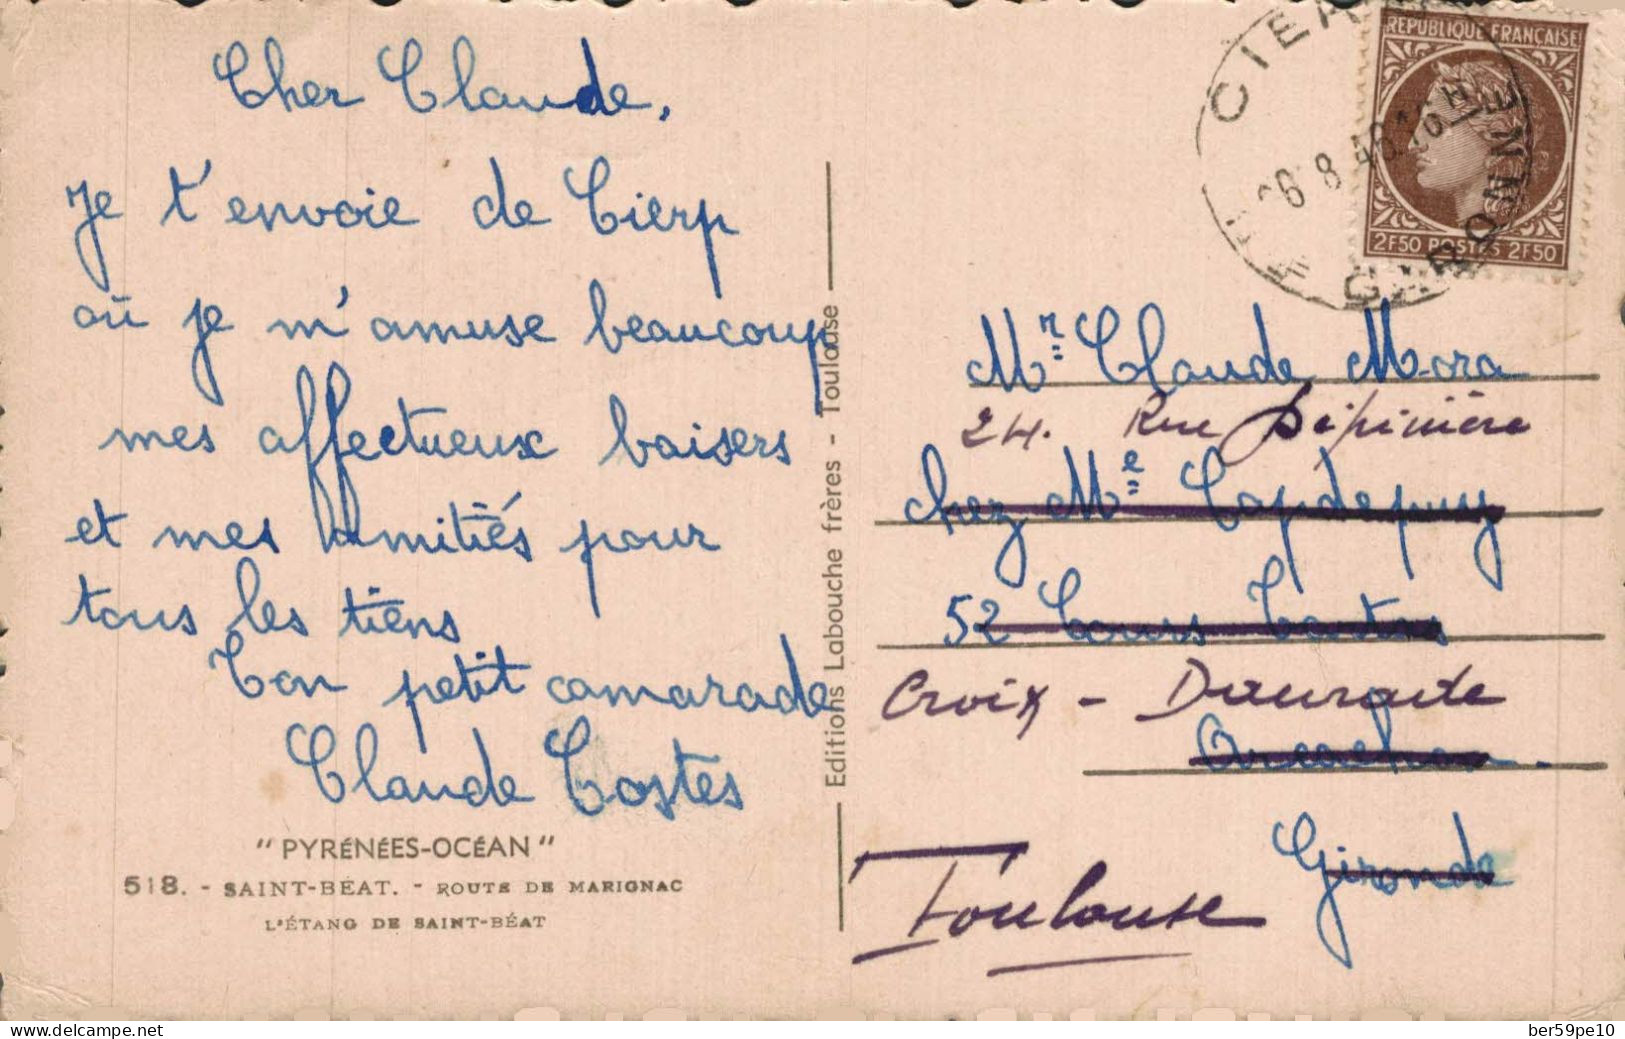 Cher Claude,
Je t'envoie de Cierp
où je m'amuse beaucoup
mes affectueux baisers
et mes amitiés pour
tous les tiens
Ton petit camarade
Claude Costes
"PYRÉNÉES-OCÉAN"
518. - SAINT-BÉAT. - ROUTE DE MARIGNAC
L'ÉTANG DE SAINT-BÉAT
Editions Labouche frères - Toulouse
REPUBLIQUE FRANÇAISE
2F50 POSTES 2F50
GARONNE
Mr Claude Mora
24. Rue Pépinière
chez Me Capdepuy
52 Cours
Croix - Daurade
Arcachon.
Gironde
Toulouse
www.delcampe.net
ber59pe10